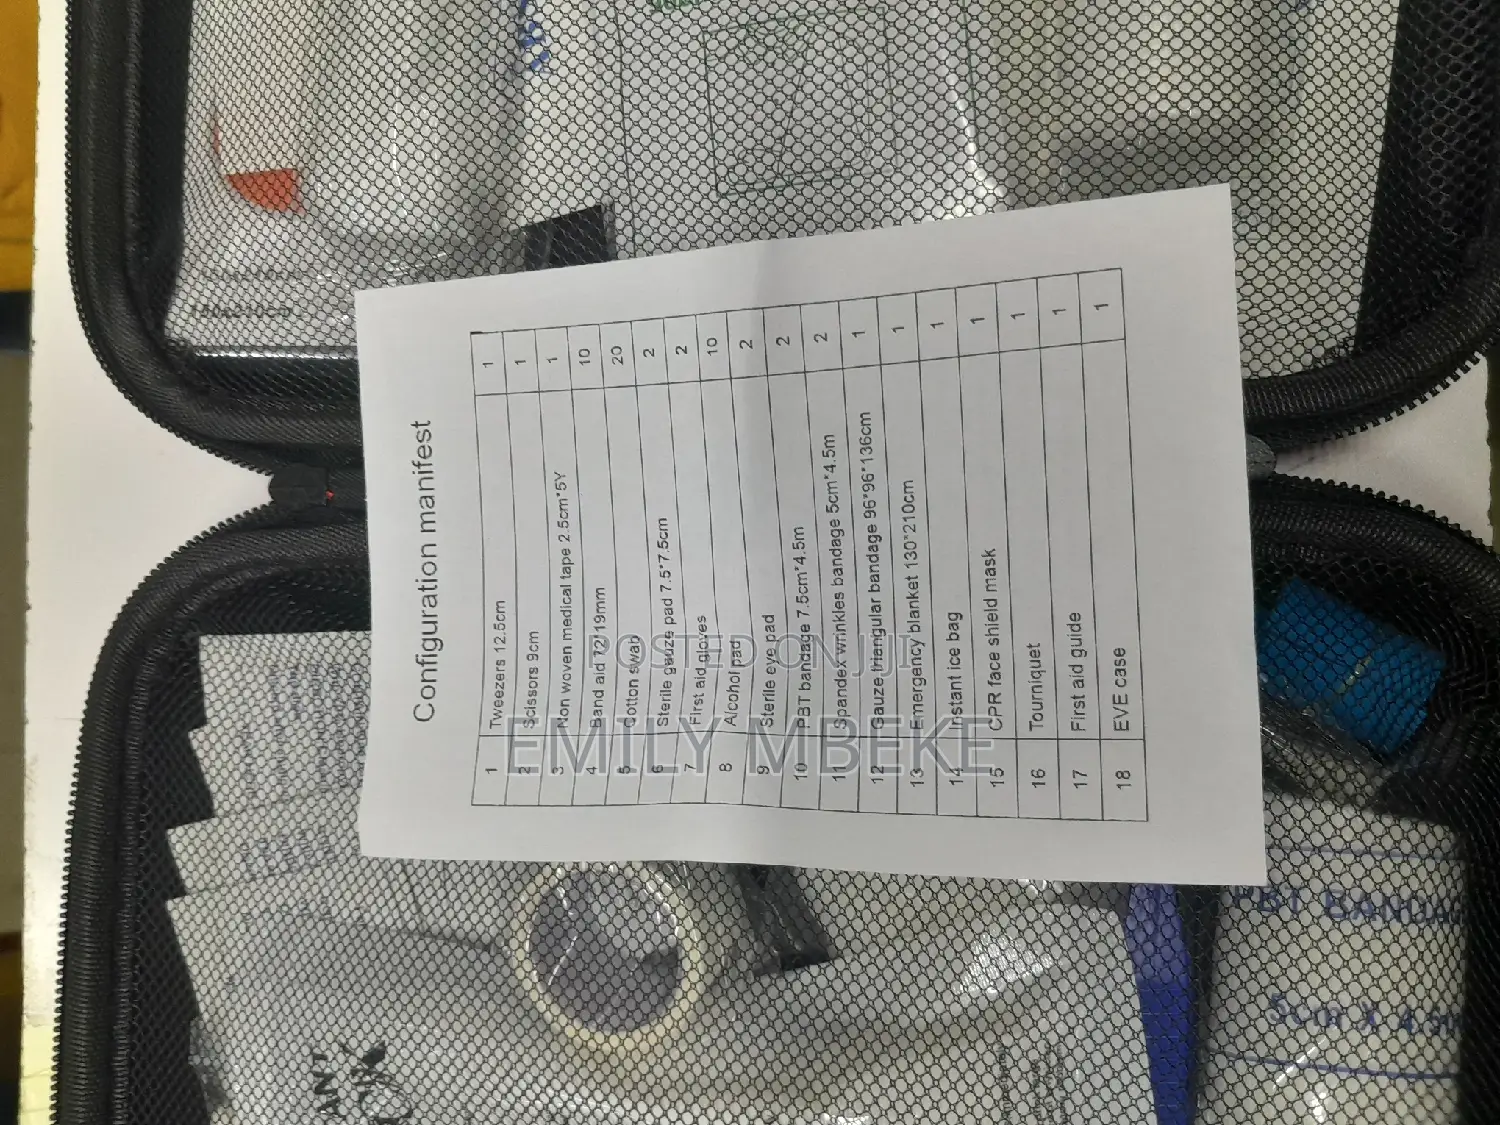 Configuration manifest
1 Tweezers 12.5cm 1
2 Scissors 9cm 1
3 Non woven medical tape 2.5cm*5Y 1
4 Band aid 72*19mm 10
5 Cotton swab 20
6 Sterile gauze pad 7.5*7.5cm 2
7 First aid gloves 2
8 Alcohol pad 10
9 Sterile eye pad 2
10 PBT bandage 7.5cm*4.5m 2
11 Spandex wrinkles bandage 5cm*4.5m 2
12 Gauze triangular bandage 96*96*136cm 1
13 Emergency blanket 130*210cm 1
14 Instant ice bag 1
15 CPR face shield mask 1
16 Tourniquet 1
17 First aid guide 1
18 EVE case 1
POSTED ON JIJI
EMILY MBEKE
PBT BANDA
5cm X 4.5